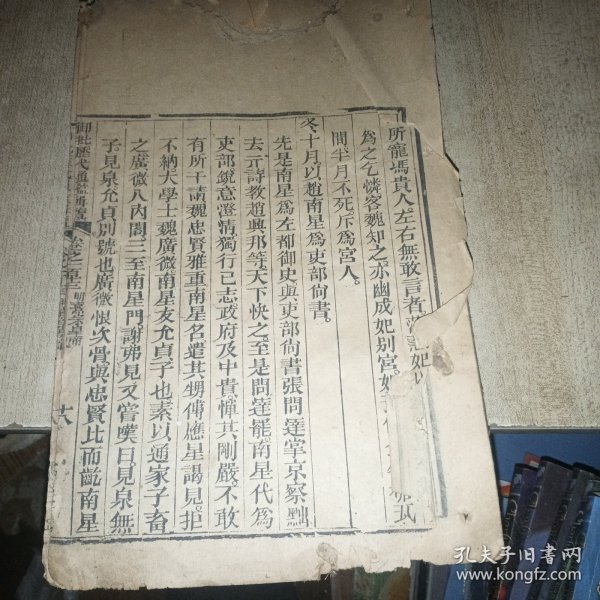 所寵馮貴人左右無敢言者
爲之乞憐客魏知之亦幽成妃别宮妃
間半月不死斥爲宮人
冬十月以趙南星爲吏部尙書
先是南星爲左都御史與吏部尙書張問達掌京察黜
去亓詩教趙興邦等天下快之至是問達罷南星代爲
吏部銳意澄清獨行已志政府及中貴憚其剛嚴不敢
有所干請魏忠賢雅重南星名遣其甥傅應星謁見拒
不納大學士魏廣微南星友允貞子也素以通家子畜
之廣微入內閣三至南星門謝弗見又嘗嘆曰見泉無
子見泉允貞別號也廣微恨次骨與忠賢比而齕南星
御批歷代通鑑輯覽
卷之百十三
明
十八
孔夫子旧书网
www.kongfz.com